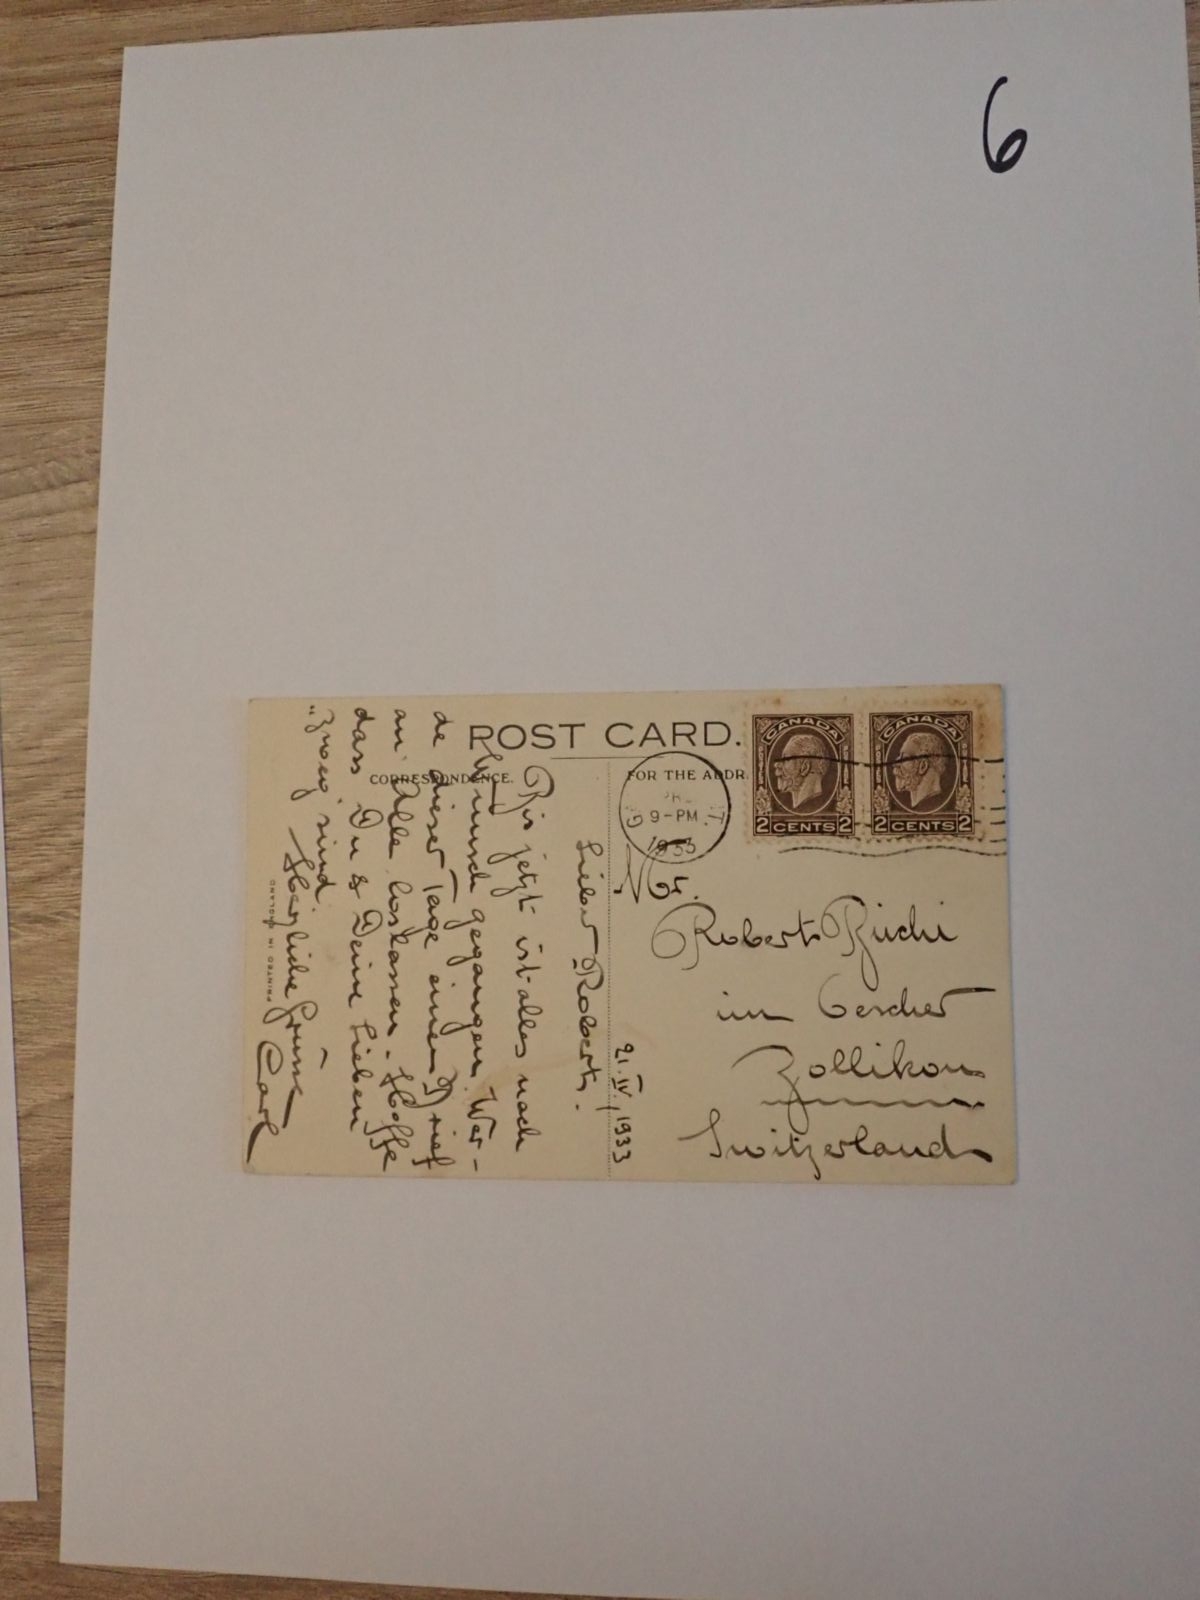 6
POST CARD.
CORRESPONDENCE.
FOR THE ADDR
CANADA
2 CENTS 2
CANADA
2 CENTS 2
9-PM
1933
21.IV.1933
Lieber Robert.
Bis jetzt ist alles nach
Wunsch gegangen. Wer-
de dieser Tage einen Brief
an Alle loslassen. Hoffe
dass Du & Deine Lieben
"zwäg" sind.
Herzliche Grüsse
Carl
Mr.
Robert Rüchi
im Gescher
Zollikon
Switzerland
PRINTED IN ENGLAND